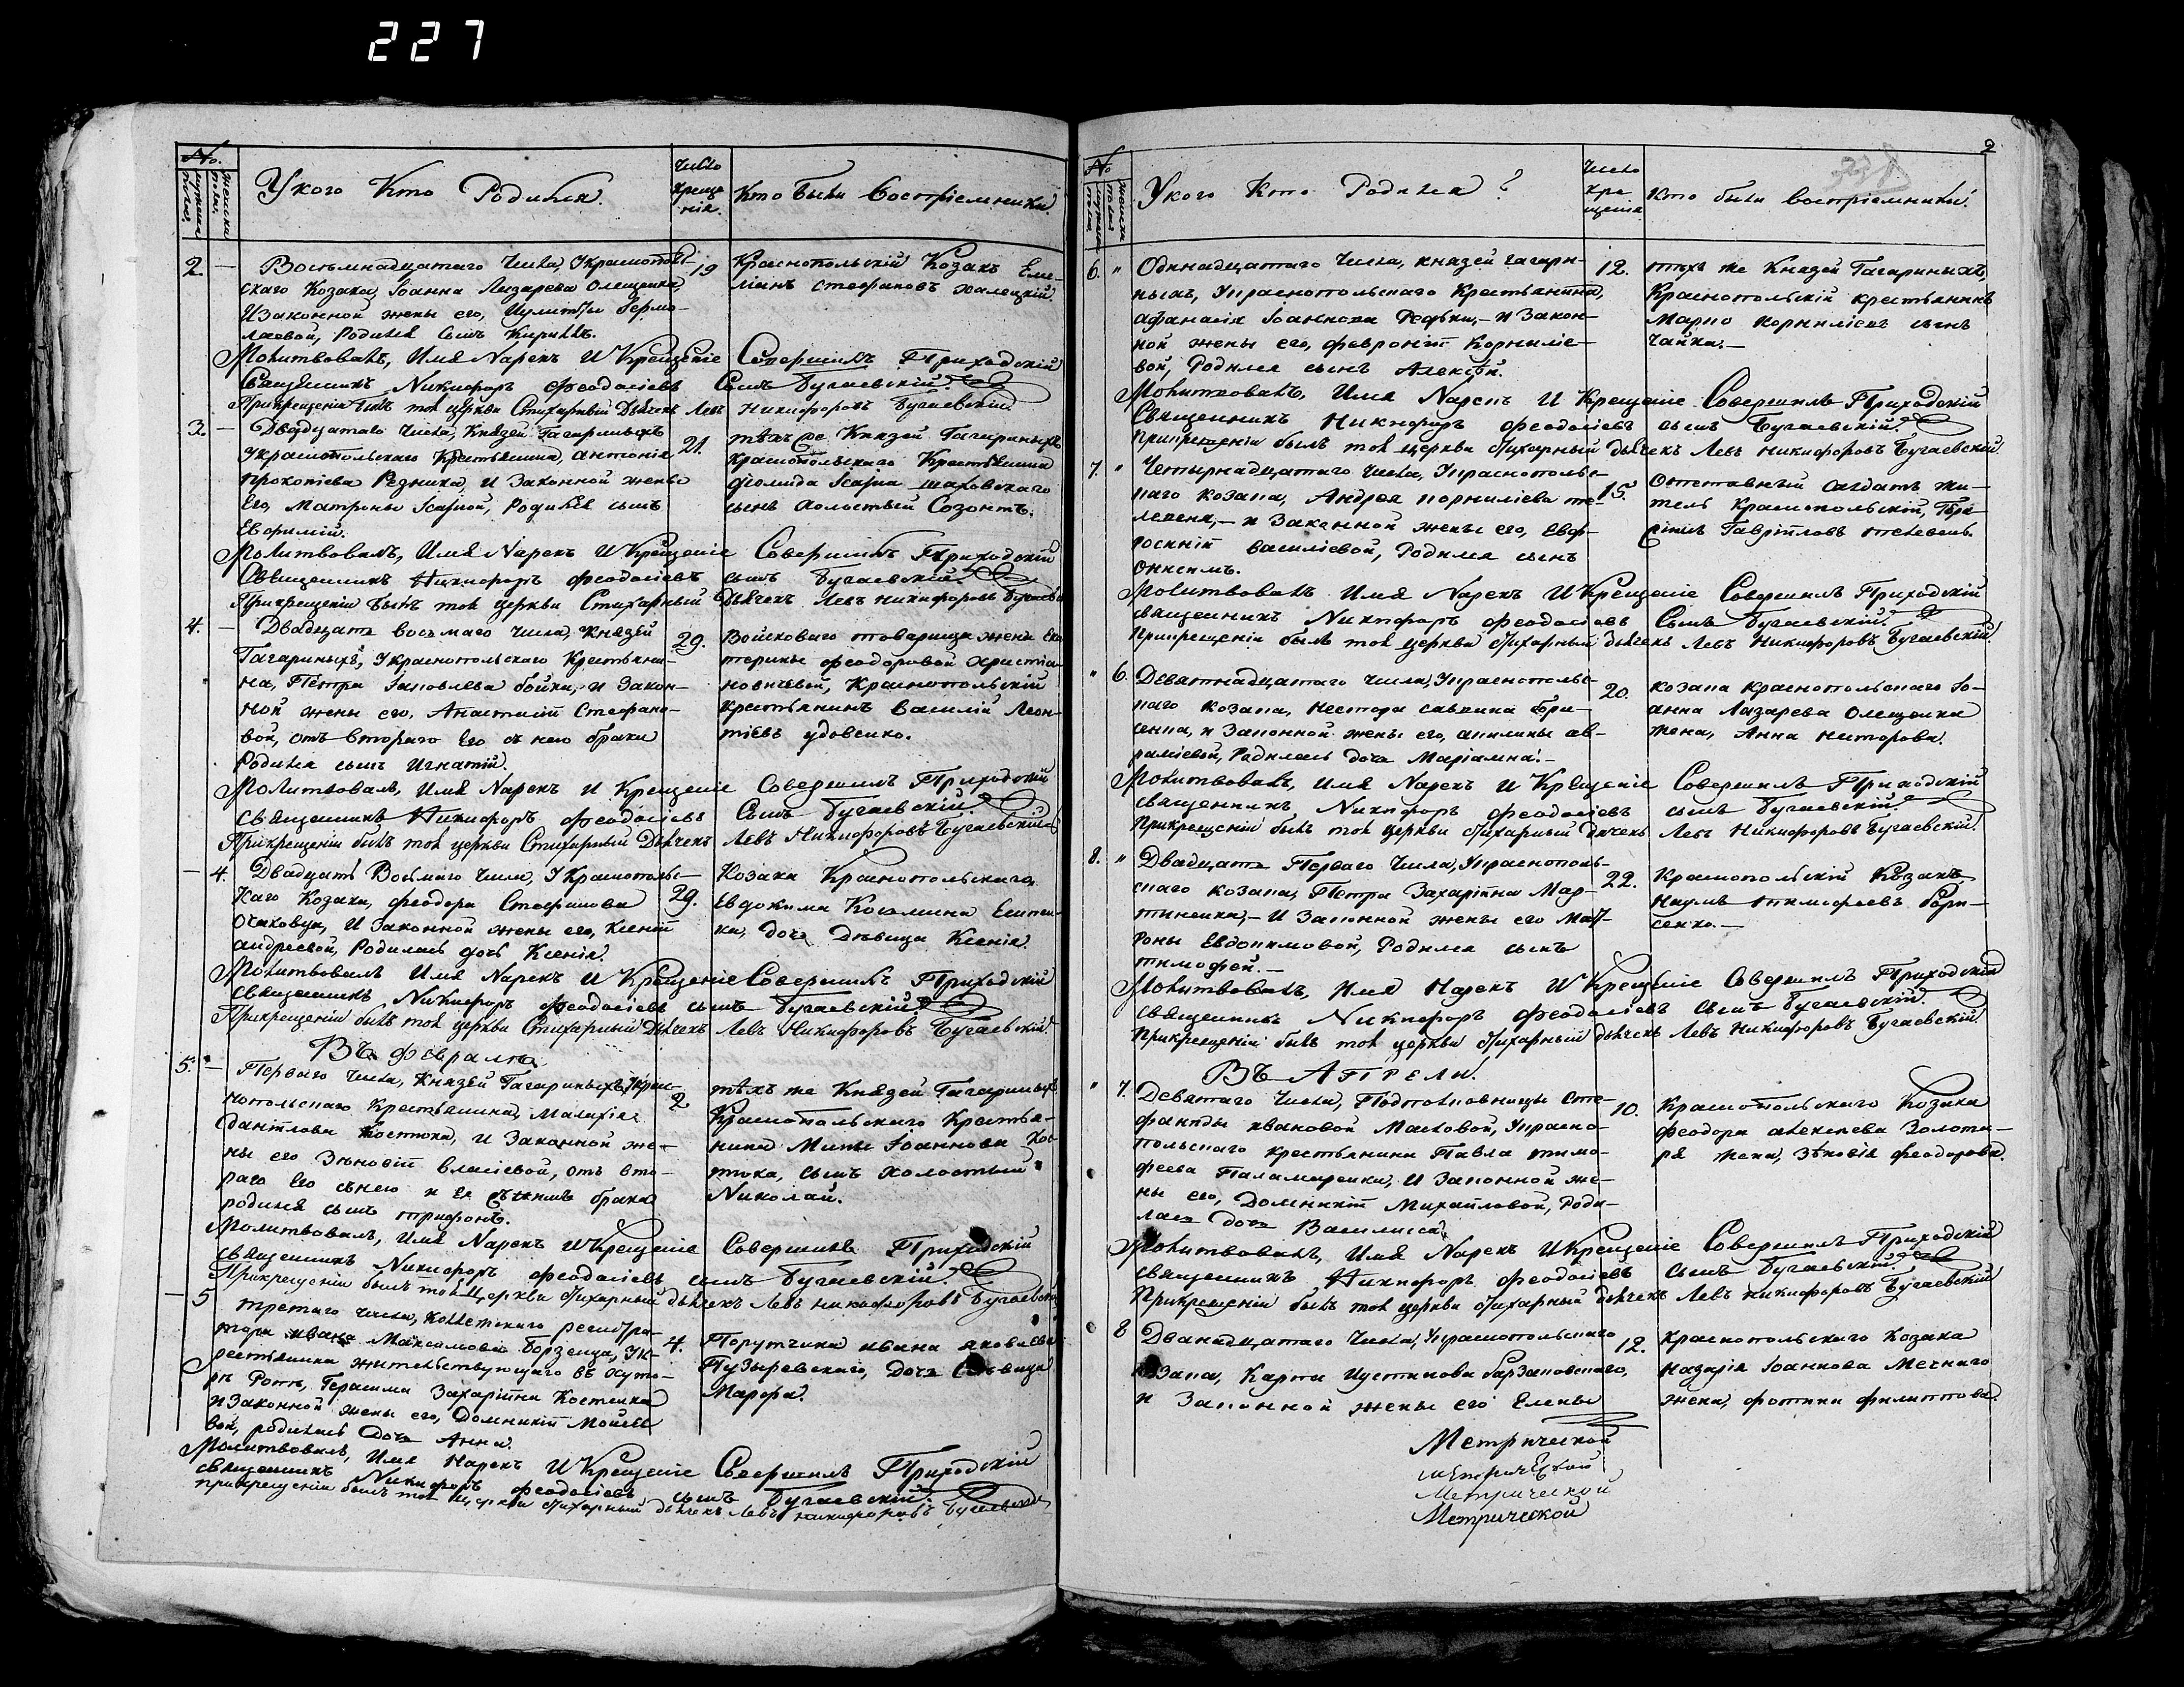 227
No.
мужеска полу,
женска полу,
У кого Кто Родился.
Число
креще
нія.
Кто были Воспріемники
2 —
Восьмнадцатаго Числа, Украснополь-
скаго Козака, Іоанна Лазарева Олещенка
И законной жены его, Іулитты Ермо-
лаевой, Родился Сынъ Кириллъ.
19
Краснопольскій Козакъ Еме-
лианъ Стефановъ Халецкій.
Молитвовалъ, Имя Нарекъ И Крещеніе Совершилъ Приходскій
Священникъ Никифоръ Феодосіевъ Сынъ Бугаевскій.
Прикрещеніи былъ той церкви Стихарный Дьячекъ Левъ Никифоровъ Бугаевскій.
3. —
Двадцатаго Числа, Князей Гагариныхъ
Украснопольскаго Крестьянина, Антонія
Прокопіева Резника, И Законной жены
Его, Матроны Ісаіной, Родился сынъ
Евфимій.
21.
тѣхъ же Князей Гагариныхъ
Краснопольскаго Крестьянина
Ісаіна Шаховскаго
сынъ Холостый Созонтъ.
Молитвовалъ, Имя Нарекъ И Крещеніе Совершилъ Приходскій
Священникъ Никифоръ Феодосіевъ сынъ Бугаевскій.
Прикрещеніи былъ той церкви Стихарный Дьячекъ Левъ Никифоровъ Бугаевскій
4. —
Двадцать восьмаго Числа, Князей
Гагариныхъ, Украснопольскаго Крестьяни-
на, Петра Іаковлева Бойка, и Закон-
ной жены его, Анастасіи Стефано-
вой, отъ втораго Его съ нею брака
Родился сынъ Игнатій.
29.
Войсковаго товарища жена Ека
терины Феодоровой Христіа-
новичевой, Краснопольскій
крестьянинъ Василій Леон-
тіевъ Удовенко.
Молитвовалъ, Имя Нарекъ И Крещеніе Совершилъ Приходскій
Священникъ Никифоръ Феодосіевъ Сынъ Бугаевскій.
Прикрещеніи былъ той церкви Стихарный Дьячекъ Левъ Никифоровъ Бугаевскій
— 4.
Двадцать Восьмаго Числа, Украснополь-
скаго Козака, Феодора Стефанова
Очаковца, И Законной жены его, Ксеніи
Андреевой, Родилась дочь Ксенія.
29.
Козака Краснопольскаго
Евдокима Косьмина
ка, Дочь Дѣвица Ксенія.
Молитвовалъ Имя Нарекъ И Крещеніе Совершилъ Приходскій
Священникъ Никифоръ Феодосіевъ сынъ Бугаевскій.
Прикрещеніи былъ той церкви Стихарный Дьячекъ Левъ Никифоровъ Бугаевскій.
Въ Февралѣ
5. —
Перваго Числа, Князей Гагариныхъ, Украс-
нопольскаго Крестьянина, Малахія
Даніилова Костюка, и Законной же-
ны его Зѣновіи Власіевой, отъ вто-
раго Его съ нею и Ея съ нимъ брака
родился сынъ Трифонъ.
2
тѣхъ же Князей Гагариныхъ
Краснопольскаго Крестья-
нина Мины Іоаннова Кос-
тюка, сынъ холостый
Николай.
Молитвовалъ, Имя Нарекъ И Крещеніе Совершилъ Приходскій
священникъ Никифоръ Феодосіевъ сынъ Бугаевскій.
Прикрещеніи былъ той Церкви Стихарный Дьячекъ Левъ Никифоровъ Бугаевскій
— 5
третьяго числа, Коллежскаго регистра-
тора Ивана Максимова Борзенца, Ук-
рестьянина жительствующаго въ хуто-
рѣ Ротѣ, Герасима Захаріина Костенка
и Законной жены его, Домникіи Моисее
вой, родилась Дочь Анна.
4.
Порутчика Ивана Яковлева
Пузыревскаго, Дочь Дѣвица
Марфа.
Молитвовалъ, Имя Нарекъ И Крещеніе Совершилъ Приходскій
священникъ Никифоръ Феодосіевъ сынъ Бугаевскій.
прикрещеніи былъ той церкви стихарный дьячекъ Левъ Никифоровъ Бугаевскій
2
No
мужеска полу
женска полу
У кого Кто Родился?
Число
кре
щенія
Кто были воспріемники.
6. "
Одинадцатаго Числа, князей Гагари-
ныхъ, Украснопольскаго Крестьянина,
Афанасія Іоаннова Редьки, — и Закон-
ной жены его, Февроніи Корниліе-
вой, Родился сынъ Алексѣй.
12.
тѣхъ же Князей Гагариныхъ,
Краснопольскій крестьянинъ
Марко Корниліевъ сынъ
Чайка. —
Молитвовалъ, Имя Нарекъ И Крещеніе Совершилъ Приходскій
Священникъ Никифоръ Феодосіевъ сынъ Бугаевскій.
Прикрещеніи былъ той церкви стихарный дьячекъ Левъ Никифоровъ Бугаевскій.
7. "
Четырнадцатаго Числа, Украснополь-
скаго козака, Андрея Корниліева те-
левеня, — и Законной жены его, Евф-
росиніи Василіевой, Родился сынъ
Онисимъ.
15.
Отставный салдатъ жи-
тель Краснопольскій, Гера
симъ Гавріиловъ телевень.
Молитвовалъ Имя Нарекъ И Крещеніе Совершилъ Приходскій
священникъ Никифоръ Феодосіевъ Сынъ Бугаевскій.
Прикрещеніи былъ той церкви стихарный дьячекъ Левъ Никифоровъ Бугаевскій.
" 6.
Девятнадцатаго числа, Украснополь-
скаго козака, Нестора Саввина Бори-
сенка, и Законной жены его, Акилины Ав-
раміевой, Родилась дочь Маріамна. —
20.
Козака Краснопольскаго Іо-
анна Лазарева Олещенка
жена, Анна Несторова.
Молитвовалъ, Имя Нарекъ И Крещеніе Совершилъ Приходскій
священникъ, Никифоръ Феодосіевъ сынъ Бугаевскій.
Прикрещеніи былъ той церкви стихарный дьячекъ Левъ Никифоровъ Бугаевскій.
8. "
Двадцать Перваго Числа, Украснополь-
скаго козака, Петра Захаріина Мар-
тиненка, — И Законной жены его Мат-
роны Евдокимовой, Родился сынъ
тимофей. —
22.
Краснопольскій Козакъ
Наумъ тимофеевъ Бори-
сенко. —
Молитвовалъ, Имя Нарекъ И Крещеніе Совершилъ Приходскій
священникъ Никифоръ Феодосіевъ Сынъ Бугаевскій.
Прикрещеніи былъ той церкви стихарный дьячекъ Левъ Никифоровъ Бугаевскій.
Въ Апрели.
" 7.
Девятаго Числа, Подполковницы Сте-
фаниды Ивановой Масловой, Украсно-
польскаго крестьянина Павла тимо-
феева Паламаренка, И Законной же-
ны его, Домникіи Михайловой, Роди-
лась Дочь Василиса.
10.
Краснопольскаго Козака
Феодора Алексѣева Золота-
ря жена, Зѣновія Феодорова.
Молитвовалъ, Имя Нарекъ И Крещеніе Совершилъ Приходскій
священникъ Никифоръ Феодосіевъ сынъ Бугаевскій.
Прикрещеніи былъ той церкви стихарный дьячекъ Левъ Никифоровъ Бугаевскій
8
Дванадцатаго Числа, Украснопольскаго
козака, Карпа Іустинова Барзаковскаго,
и Законной жены его Елены
12.
Краснопольскаго Козака
Назарія Іоаннова Мечнаго
жена, Фотина Филиппова.
Метрической
Метрической
Метрической
Метрической